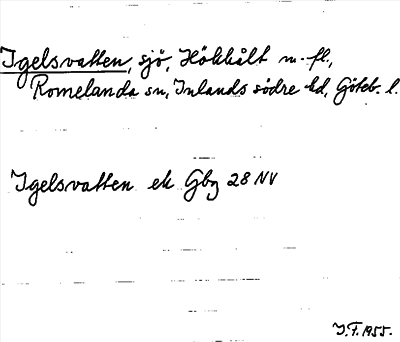 Igelsvatten, sjö, Hökhålt m. fl.,
Romelanda sn, Inlands södre hd, Göteb. l.
Igelsvatten ek Gbg 28 NV
I.F. 1955.